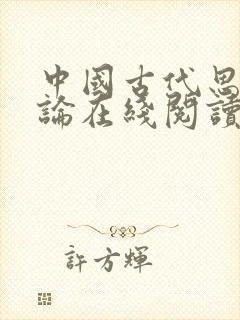 中國古代思
論在綫閱讀
許方輝